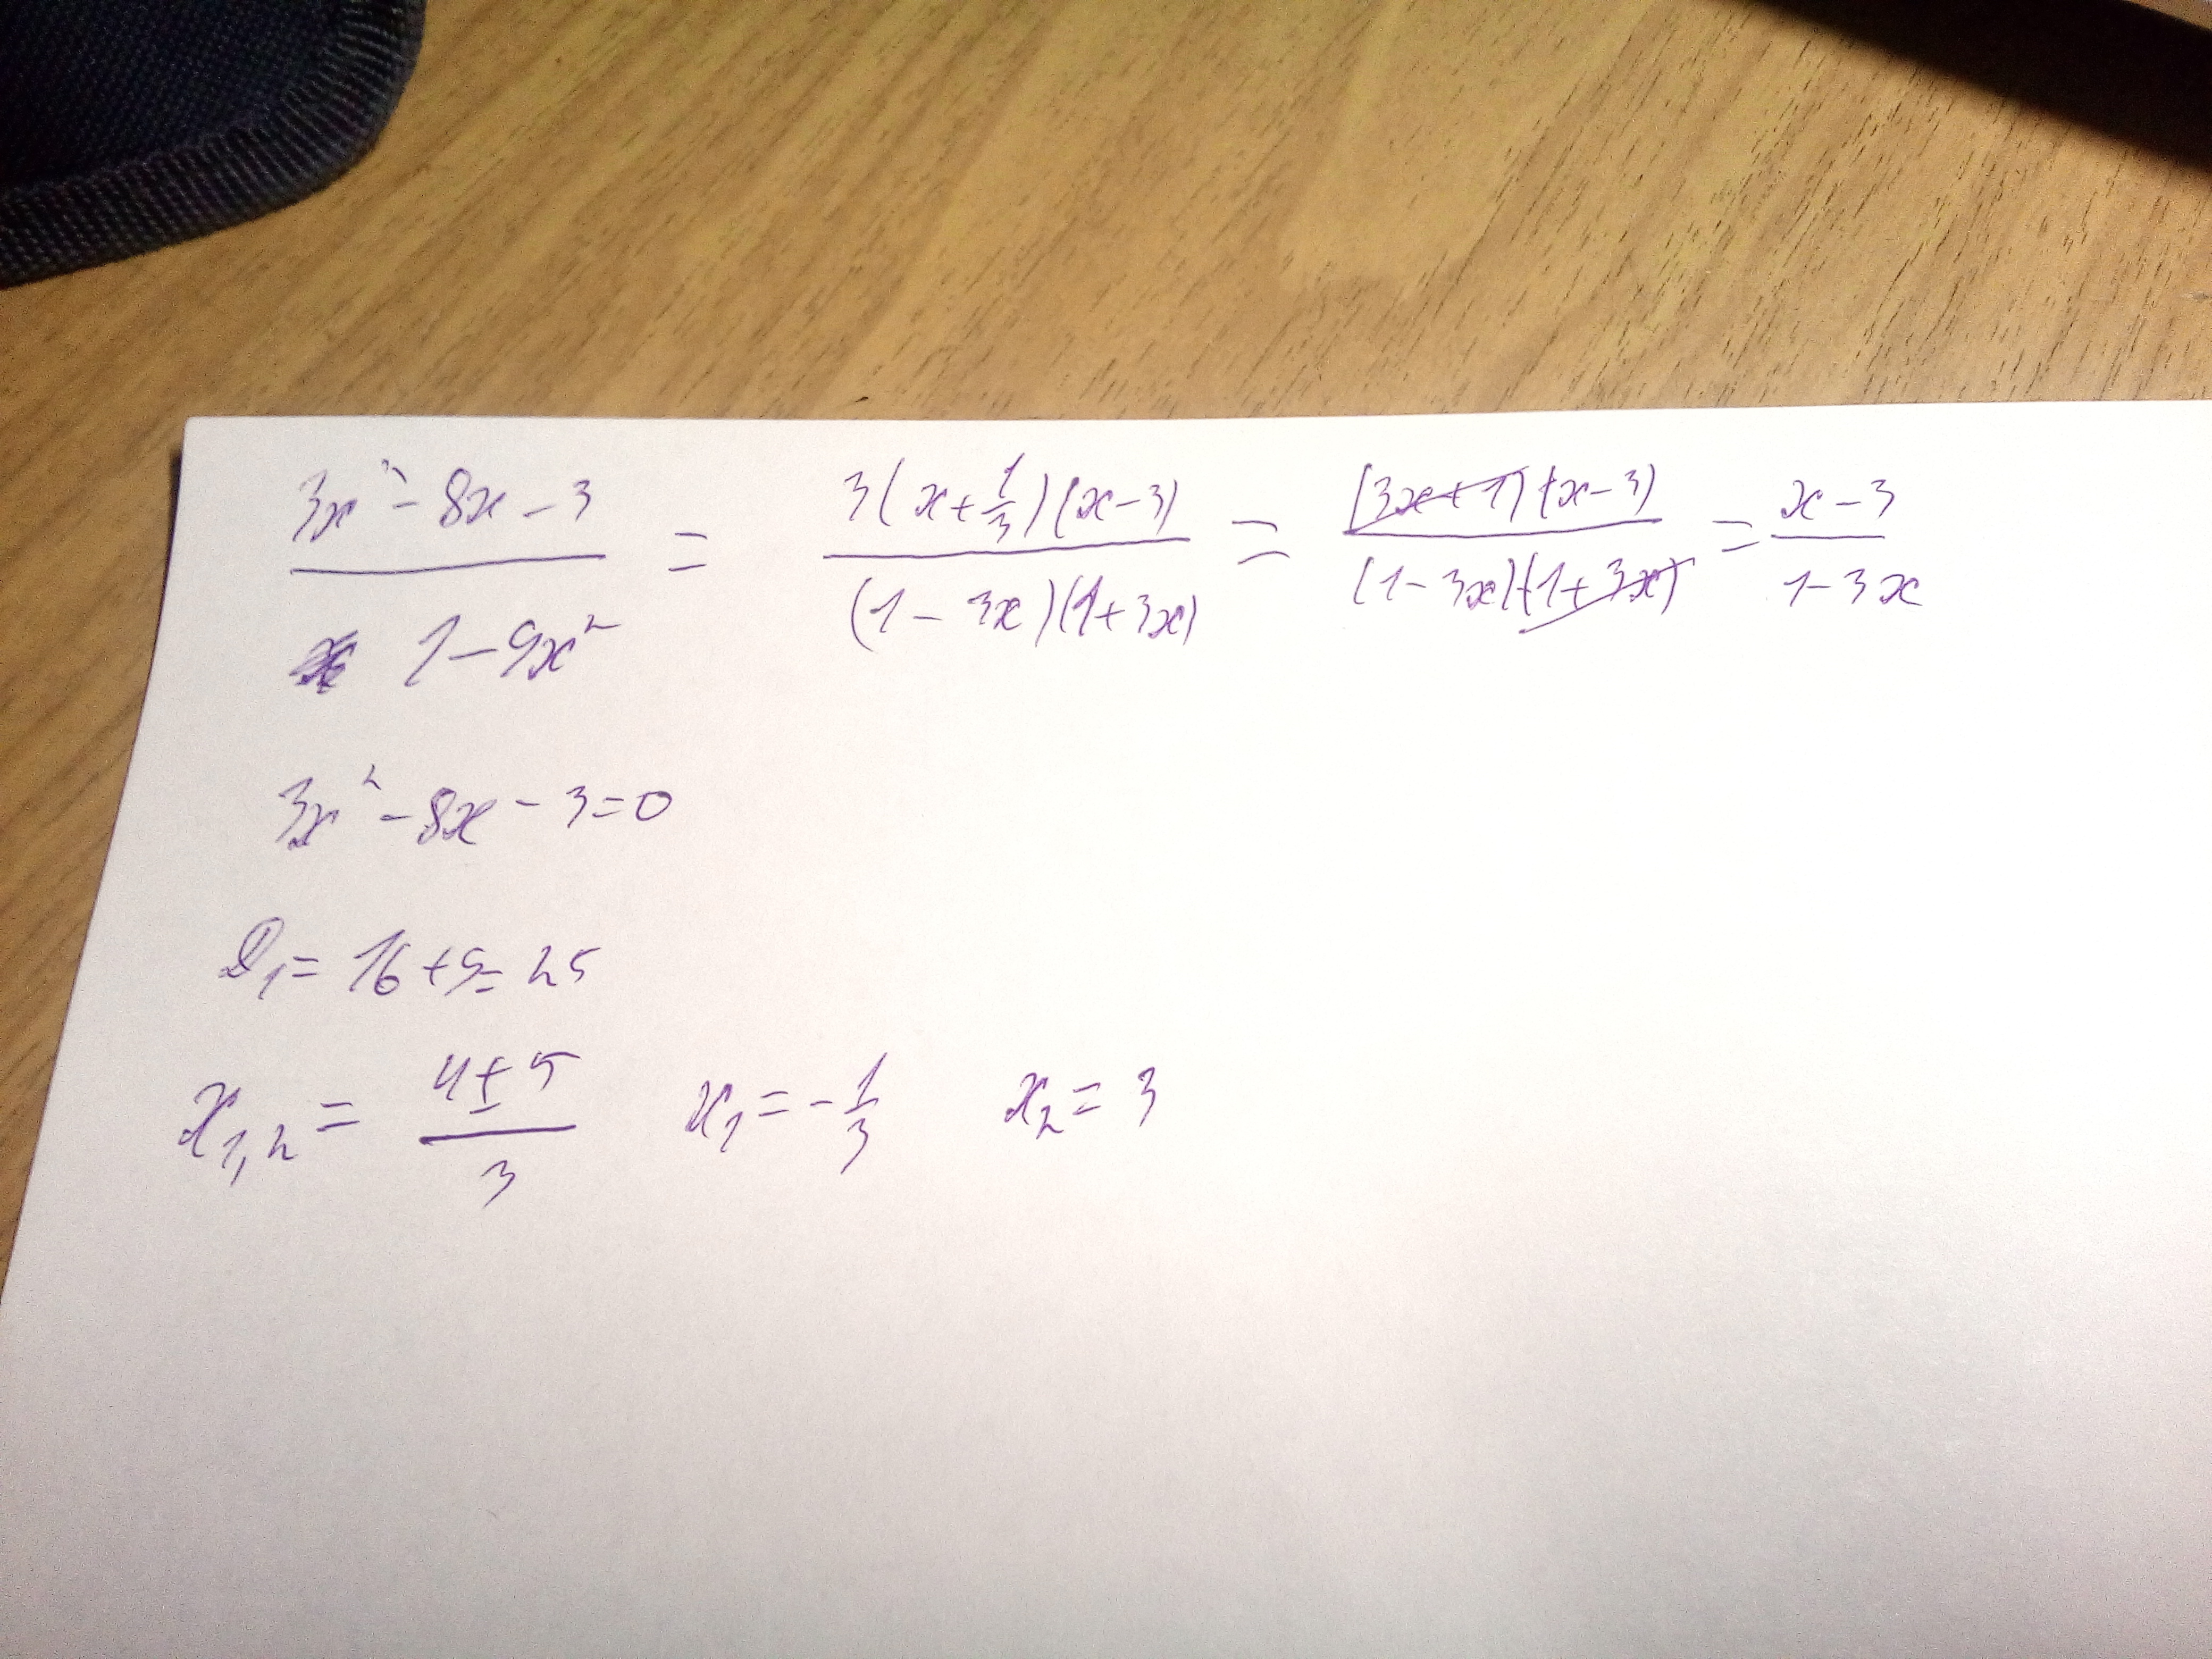 (3x² - 8x - 3)/(1 - 9x²) = 3(x + 1/3)(x - 3)/((1 - 3x)(1 + 3x)) = (3x + 1)(x - 3)/((1 - 3x)(1 + 3x)) = (x - 3)/(1 - 3x)
3x² - 8x - 3 = 0
D₁ = 16 + 9 = 25
x₁,₂ = (4 ± 5)/3 x₁ = -1/3 x₂ = 3